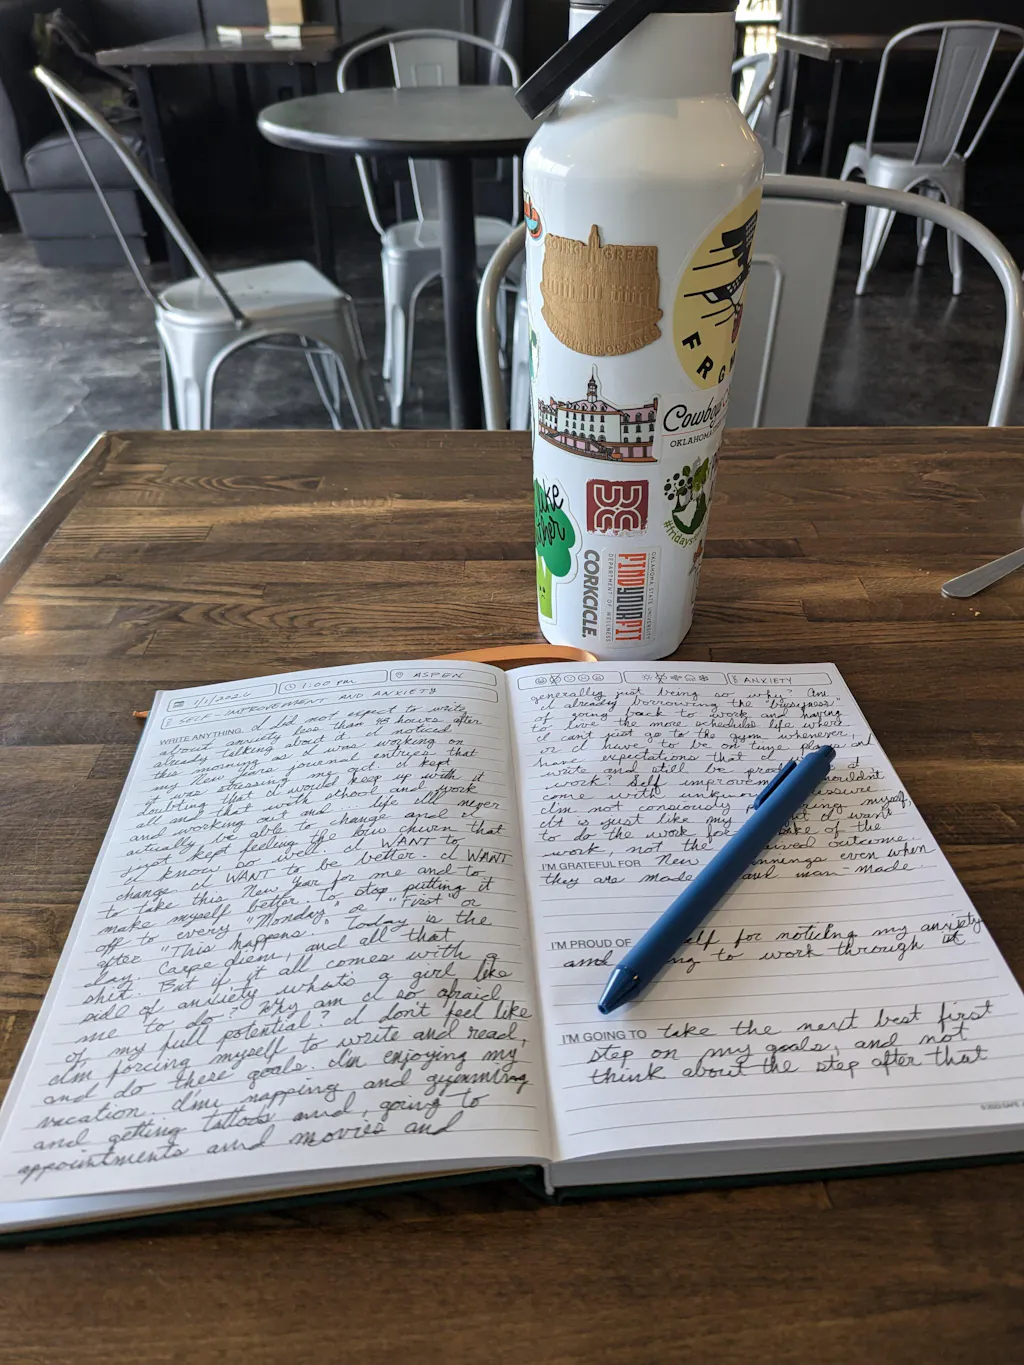 GOING GREEN
ORANGE
FRGN
Cowboy
OKLAHOMA
#fridays
CORKCICLE.
DEPARTMENT OF WELLNESS
FINDYOURFIT
OKLAHOMA STATE UNIVERSITY
1/1/2026
1:00 pm
ASPEN
SELF-IMPROVEMENT AND ANXIETY
WRITE ANYTHING I did not expect to write
about anxiety less than 48 hours after
already talking about it. I noticed
this morning as I was working on
my New Years journal entries that
it was stressing me out. I kept
doubting that I would keep up with it
all and that with school and work
and working out and ... life I'll never
actually be able to change and I
just kept feeling the low churn that
I know so well. I WANT to
change. I WANT to be better. I WANT
to take this New Year for me and to
make myself better. To stop putting it
off to every "Monday" or "First" or
after "This happens." Today is the
day. Carpe diem, and all that
shit. But if it all comes with a
side of anxiety what's a girl like
me to do? Why am I so afraid
of my full potential? I don't feel like
I'm forcing myself to write and read,
and do these goals. I'm enjoying my
vacation. I'm napping and gymming
and getting tattoos and, going to
appointments and movies and
ANXIETY
generally just being so why? Am
I already borrowing the "busyness"
of going back to work and having
to live the more scheduled life where
I can't just go to the gym whenever,
or I have to be on time places and
have expectations that I
write and still be at
work? Self improvement shouldn't
come with pressure
I'm not consciously myself,
It is just like my I want
to do the work for sake of the
work, not the outcome.
I'M GRATEFUL FOR New even when
they are made man-made
I'M PROUD OF for noticing my anxiety
and to work through it
I'M GOING TO take the next best first
step on my goals, and not
think about the step after that